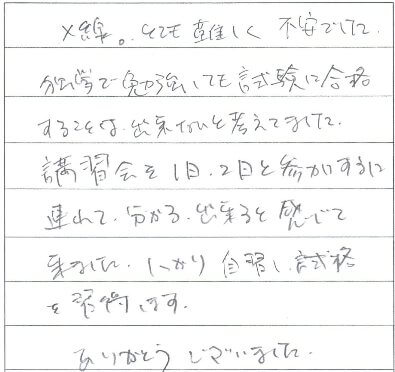 X線。とても難しく 不安でした。
独学で勉強しても試験に合格
することは、出来ないと考えてました。
講習会を1日、2日と参加するに
連れて、分かる、出来ると感じて
来ました。しっかり自習し、試格
を習得します。
ありがとうございました。